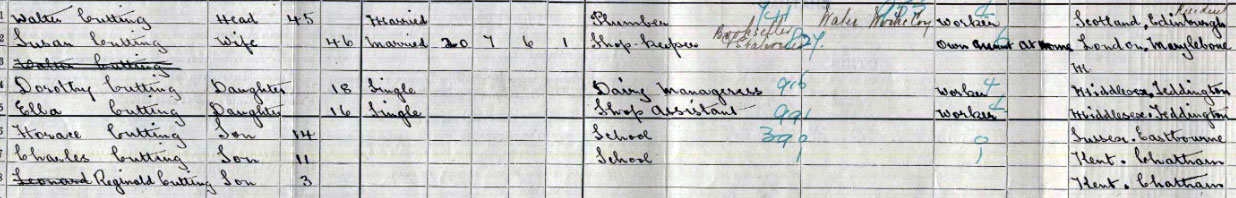 1 Walter Cutting Head 45 Married Plumber 741 Water Works Coy 753 Worker 4 Scotland, Edinburgh Resident
2 Susan Cutting Wife 46 Married 20 7 6 1 Shop-keeper Bookseller Stationer 827. own account at home London, Marylebone
3 Walter Cutting M
4 Dorothy Cutting Daughter 18 Single Dairy Manageress 916 Worker 4 Middlesex, Teddington
5 Ella Cutting Daughter 16 Single Shop Assistant 991 Worker 4 Middlesex, Teddington
6 Horace Cutting Son 14 School 390 0 Sussex. Eastbourne
7 Charles Cutting Son 11 School Kent. Chatham
8 Leonard Reginald Cutting Son 3 Kent. Chatham